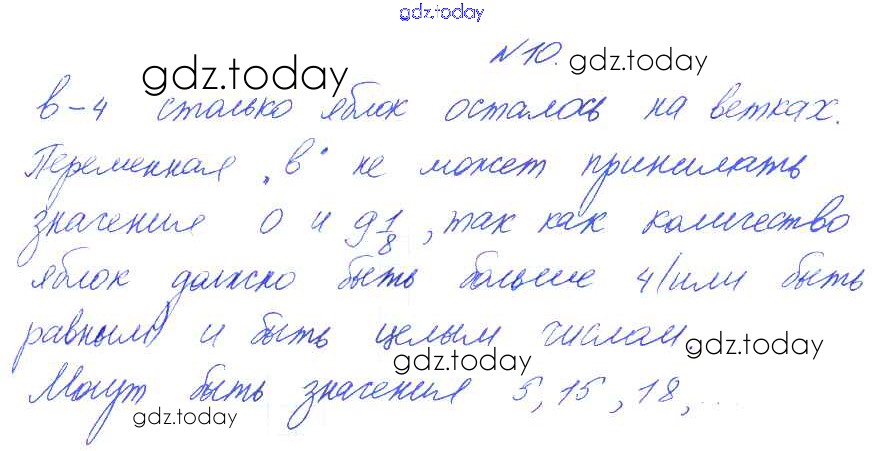 gdz.today
№10.
gdz.today
gdz.today
в-4 столько яблок осталось на ветках.
Переменная „в" не может принимать
значения 0 и 9 1/8, так как количество
яблок должно быть больше 4 (или быть
равным) и быть целым числом.
gdz.today
gdz.today
Могут быть значения 5, 15, 18, ...
gdz.today